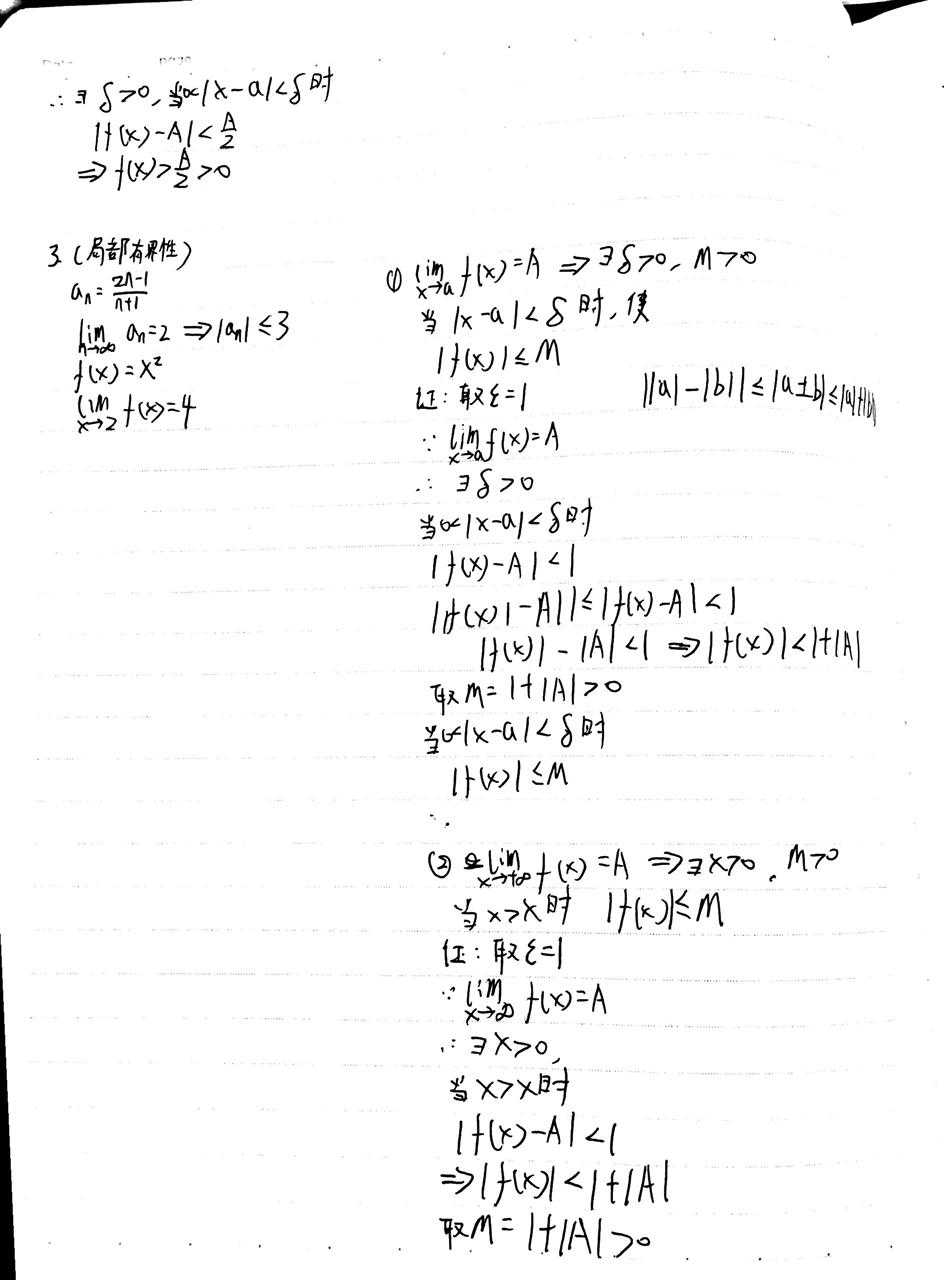 ∴ ∃ δ>0, 当0<|x-a|<δ时
|f(x)-A|<A/2
⇒ f(x)>A/2>0
3. (局部有界性)
aₙ = (2n-1)/(n+1)
lim n→∞ aₙ=2 ⇒ |aₙ| ≤ 3
f(x) = x²
lim x→2 f(x)=4
(1) lim x→a f(x)=A ⇒ ∃ δ>0, M>0
当 |x-a|<δ 时, 使
|f(x)| ≤ M
证: 取ε=1
||a|-|b|| ≤ |a±b| ≤ |a|+|b|
∵ lim x→a f(x)=A
∴ ∃ δ>0
当0<|x-a|<δ时
|f(x)-A|<1
||f(x)|-A|| ≤ |f(x)-A|<1
|f(x)|-|A|<1 ⇒ |f(x)|<1+|A|
取M=1+|A|>0
当0<|x-a|<δ时
|f(x)| ≤ M
∴
(2) lim x→+∞ f(x)=A ⇒ ∃ X>0, M>0
当 x>X时 |f(x)| ≤ M
证: 取ε=1
∵ lim x→∞ f(x)=A
∴ ∃ X>0,
当 x>X时
|f(x)-A|<1
⇒ |f(x)|<1+|A|
取M=1+|A|>0